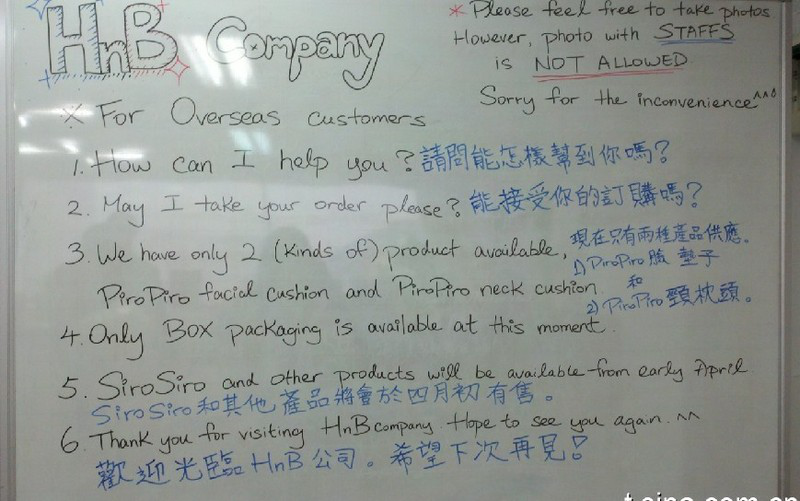 HnB Company
* Please feel free to take photos.
However, photo with STAFFS
is NOT ALLOWED
Sorry for the inconvenience^^;
※ For Overseas customers
1. How can I help you? 請問能怎樣幫到你嗎?
2. May I take your order please? 能接受你的訂購嗎?
3. We have only 2 (kinds of) product available,
PiroPiro facial cushion and PiroPiro neck cushion
現在只有兩種產品供應。
1) PiroPiro臉 墊子
和
2) PiroPiro 頸枕頭。
4. Only BOX packaging is available at this moment.
5. SiroSiro and other products will be available from early April
SiroSiro和其他產品將會於四月初有售。
6. Thank you for visiting HnB company. Hope to see you again. ^^
歡迎光臨HnB公司。希望下次再見!